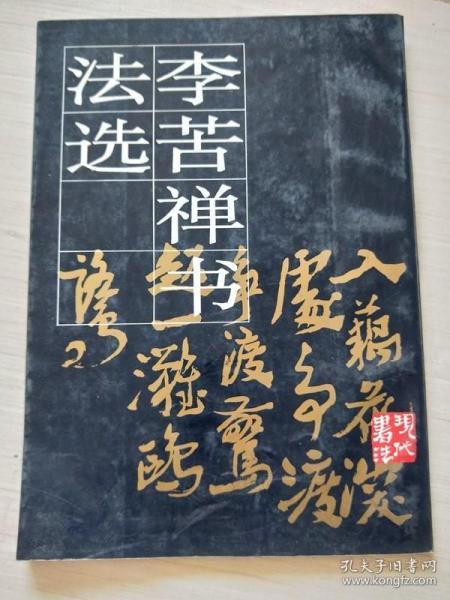 李苦禅书
法选
入藕花深
處争渡
争渡驚
起一灘鷗
現代
書法
孔夫子旧书网
www.kongfz.com